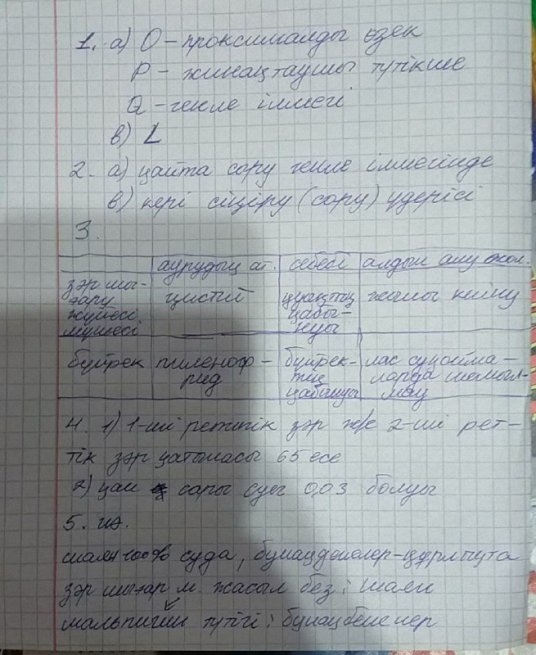 1. а) О – проксималды өзек
Р – жинақтаушы түтікше
Q – генле ілмегі
в) L
2. а) қайта сору генле ілмегінде
в) кері сіңіру (сору) үдерісі
3.
аурудың ат. себебі алдын алу жол.
зәр шы-
ғару
жүйесі
мүшесі
цистит
қуықтың
қабы-
нуы
жылы кийну
бүйрек пиленоф-
рид
бүйрек-
тің
қабынуы
лас суқойма-
ларда шомыл-
мау
4. 1) 1-ші реттік зәр ж/е 2-ші рет-
тік зәр қатынасы 65 есе
2) қан сары суы 0,03 болуы
5.
шаян суда, бунақденелер-құрлықта
зәр шығар м. жасыл без : шаян
мальпигий түтігі : бунақденелер